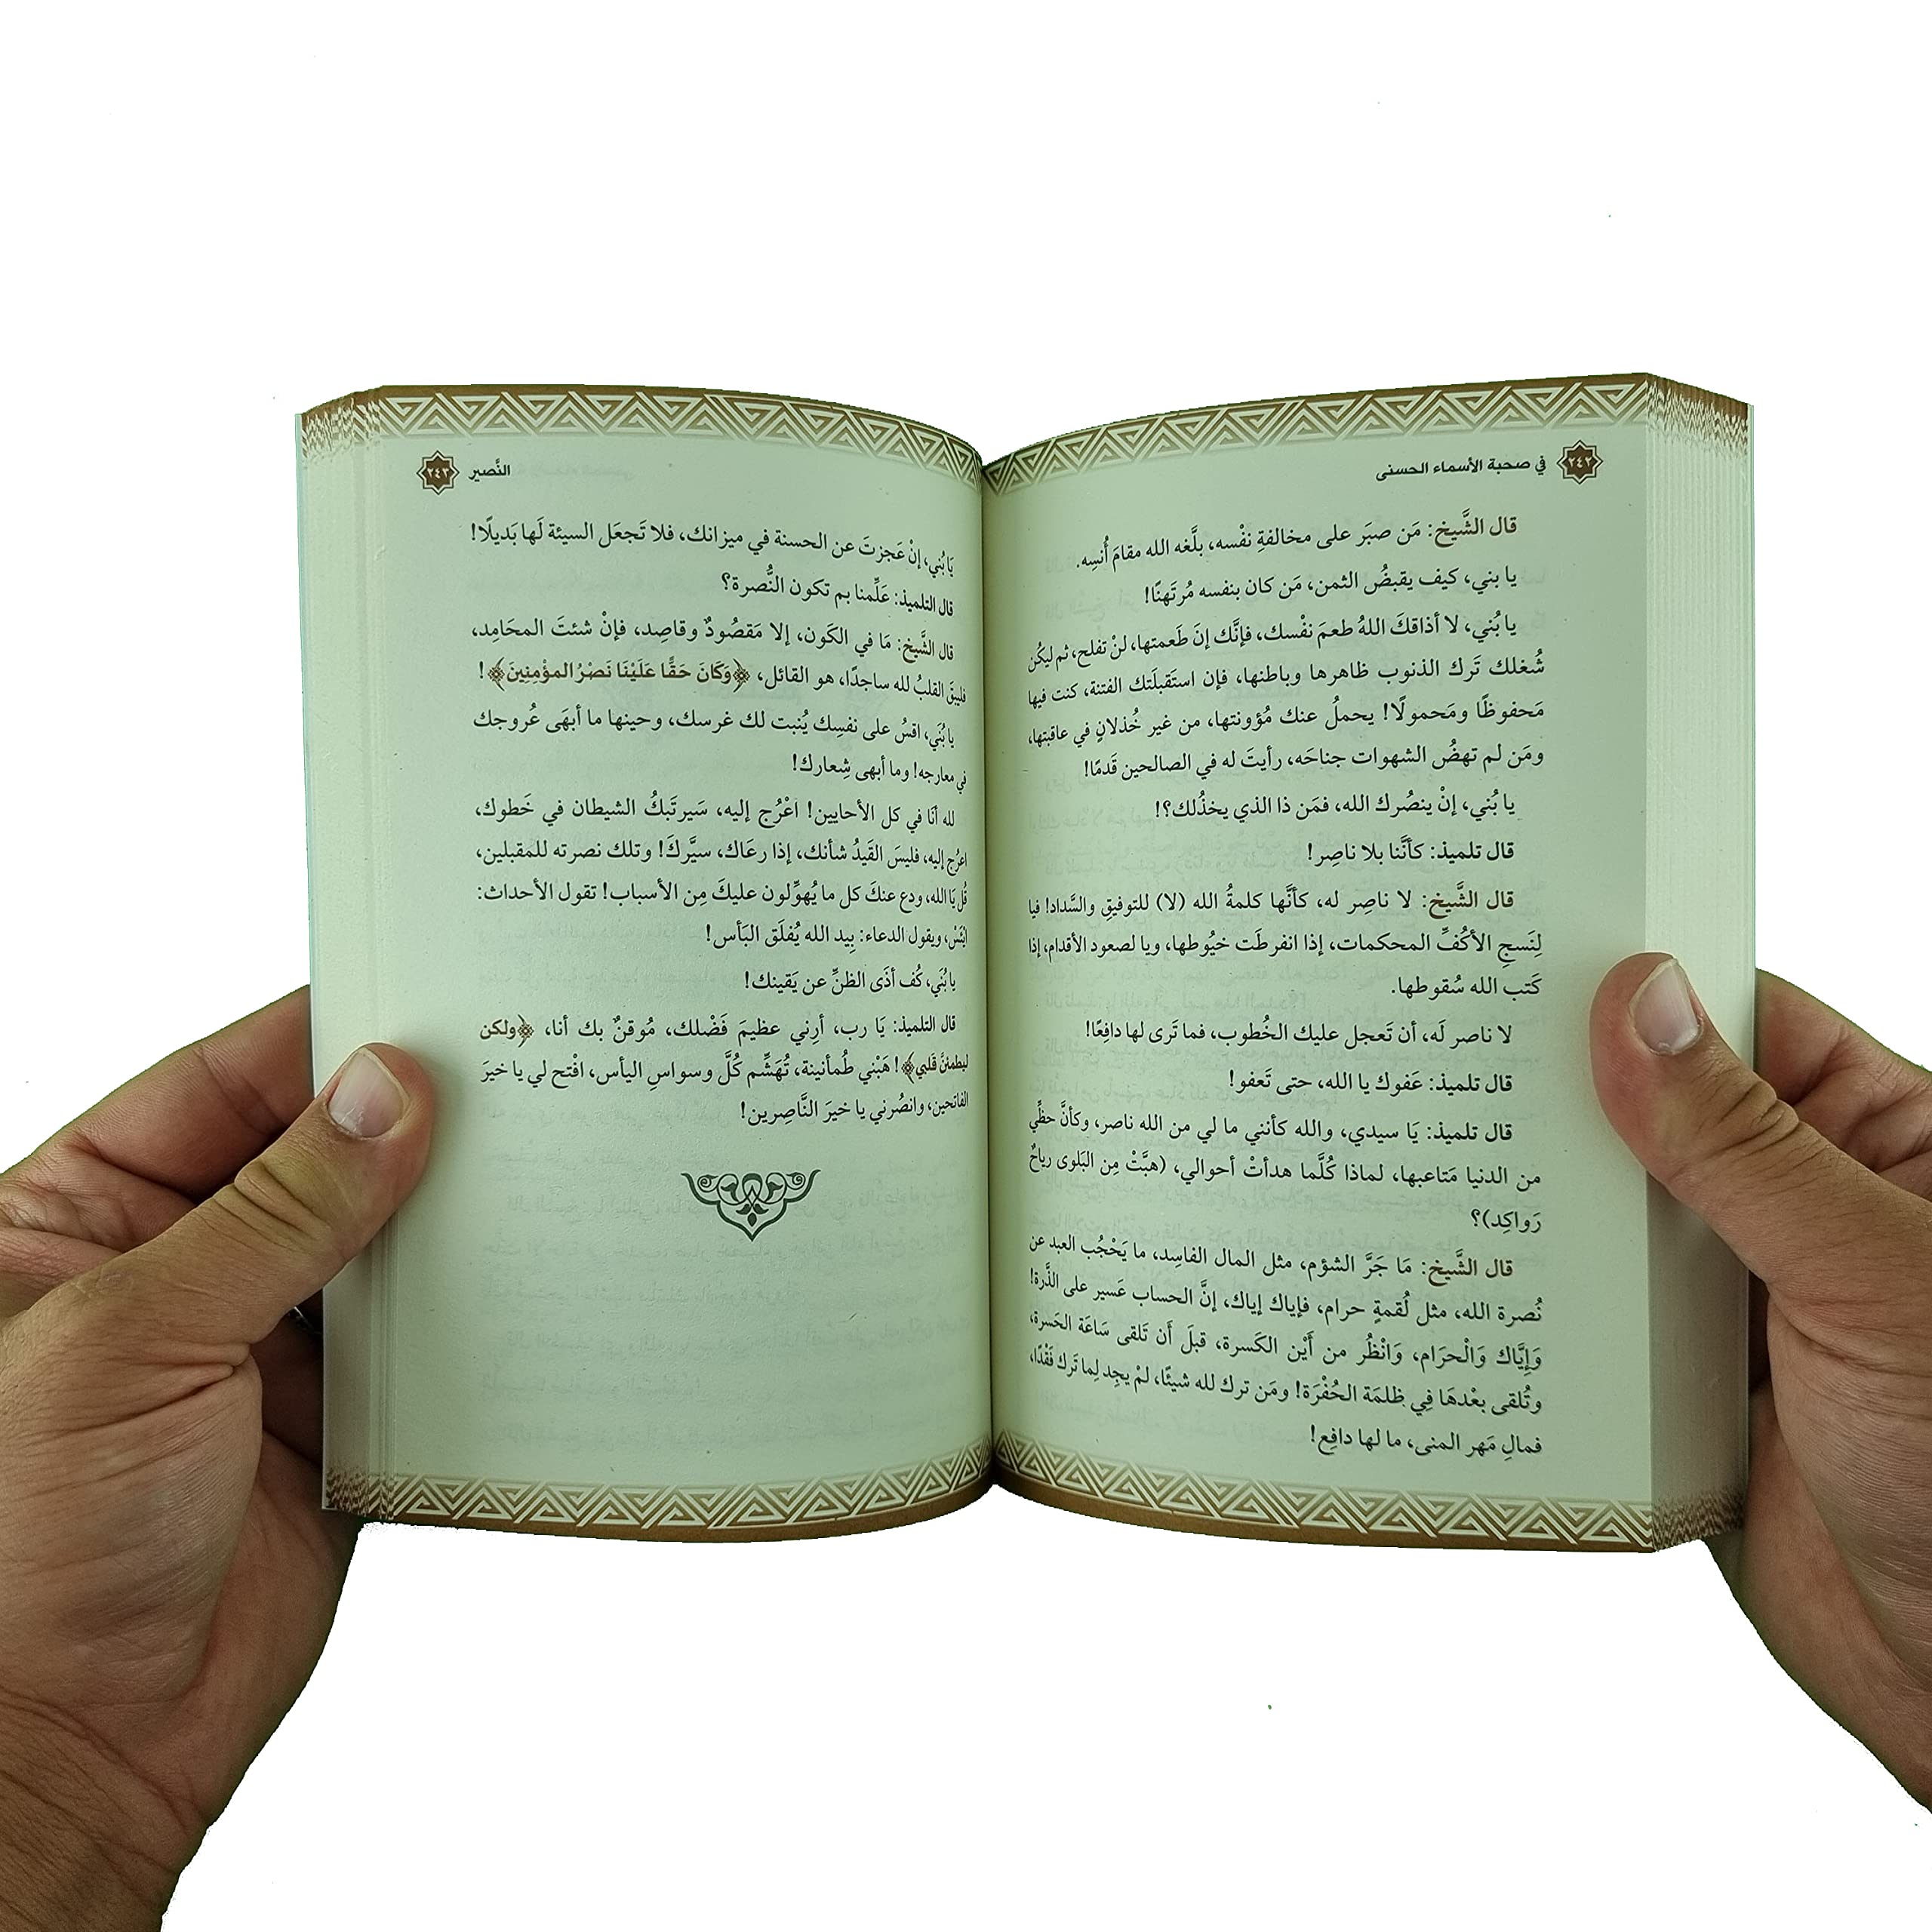 ٢٤٢ في صحبة الأسماء الحسنى
قال الشَّيخ: مَن صبَر على مخالفةِ نفْسه، بلَّغه الله مقامَ أُنسِه.
يا بني، كيف يقبضُ الثمن، مَن كان بنفسه مُرتَهنًا!
يا بُني، لا أذاقكَ اللهُ طعمَ نفْسك، فإنَّك إنَ طَعمتها، لنْ تفلح، ثم ليكُن
شُغلك تَرك الذنوب ظاهرها وباطنها، فإن استَقبلَتك الفتنة، كنت فيها
مَحفوظًا ومَحمولًا! يحملُ عنك مُؤونتها، من غير خُذلانٍ في عاقبتها،
ومَن لم تهضُ الشهوات جناحَه، رأيتَ له في الصالحين قَدمًا!
يا بُني، إنْ ينصُرك الله، فمَن ذا الذي يخذُلك؟!
قال تلميذ: كأنَّنا بلا ناصِر!
قال الشَّيخ: لا ناصِر له، كأنَّها كلمةُ الله (لا) للتوفيقِ والسَّداد! فيا
لِنَسجِ الأكُفِّ المحكمات، إذا انفرطَت خيُوطها، ويا لصعود الأقدام، إذا
كَتب الله سُقوطها.
لا ناصر لَه، أن تَعجل عليك الخُطوب، فما تَرى لها دافِعًا!
قال تلميذ: عَفوك يا الله، حتى تَعفو!
قال تلميذ: يَا سيدي، والله كأنني ما لي من الله ناصر، وكأنَّ حظِّي
من الدنيا مَتاعبها، لماذا كُلَّما هدأتْ أحوالي، (هبَّتْ مِن البَلوى رياحٌ
رَواكِد)؟
قال الشَّيخ: مَا جَرَّ الشؤم، مثل المال الفاسِد، ما يَحْجُب العبد عن
نُصرة الله، مثل لُقمةٍ حرام، فإياك إياك، إنَّ الحساب عَسير على الذَّرة!
وَإِيَّاك وَالْحرَام، وَانْظُر من أَيْن الكَسرة، قبلَ أَن تَلقى سَاعَة الحَسرة،
وتُلقى بعْدهَا فِي ظلمَة الحُفْرَة! ومَن ترك لله شيئًا، لمْ يجِد لِما تَرك فَقْدًا،
فمالِ مَهر المنى، ما لها دافِع!
النَّصير ٢٤٣
يَا بُني، إنْ عَجزتَ عن الحسنة في ميزانك، فلا تَجعَل السيئة لَها بَديلًا!
قال التلميذ: عَلِّمنا بم تكون النُّصرة؟
قال الشَّيخ: مَا في الكَون، إلا مَقصُودٌ وقاصِد، فإنْ شئتَ المحَامِد،
فليبقَ القلبُ لله ساجدًا، هو القائل، ﴿وَكَانَ حَقًّا عَلَيْنَا نَصْرُ المؤْمِنِينَ﴾!
يا بُنَي، اقسُ على نفسِك يُنبت لك غرسك، وحينها ما أبهَى عُروجك
في معارجه! وما أبهى شِعارك!
لله أنَا في كل الأحايين! اعْرُج إليه، سَيرتَبكُ الشيطان في خَطوك،
اعرُج إليه، فليسَ القَيدُ شأنك، إذا رعَاك، سيَّركَ! وتلك نصرته للمقبلين،
قُل يَا الله، ودع عنكَ كل ما يُهوِّلون عليكَ مِن الأسباب! تقول الأحداث:
ابْتَئسْ، ويقول الدعاء: بِيد الله يُفلَق البَأس!
يا بُنَي، كُف أذَى الظنِّ عن يَقينك!
قال التلميذ: يَا رب، أرِني عظيمَ فَضْلك، مُوقنٌ بك أنا، ﴿ولكن
ليطمئنَّ قَلبي﴾! هَبْني طُمأنينة، تُهَشِّم كُلَّ وسواسِ اليأس، افْتح لي يا خيرَ
الفاتحين، وانصُرني يا خيرَ النَّاصِرين!